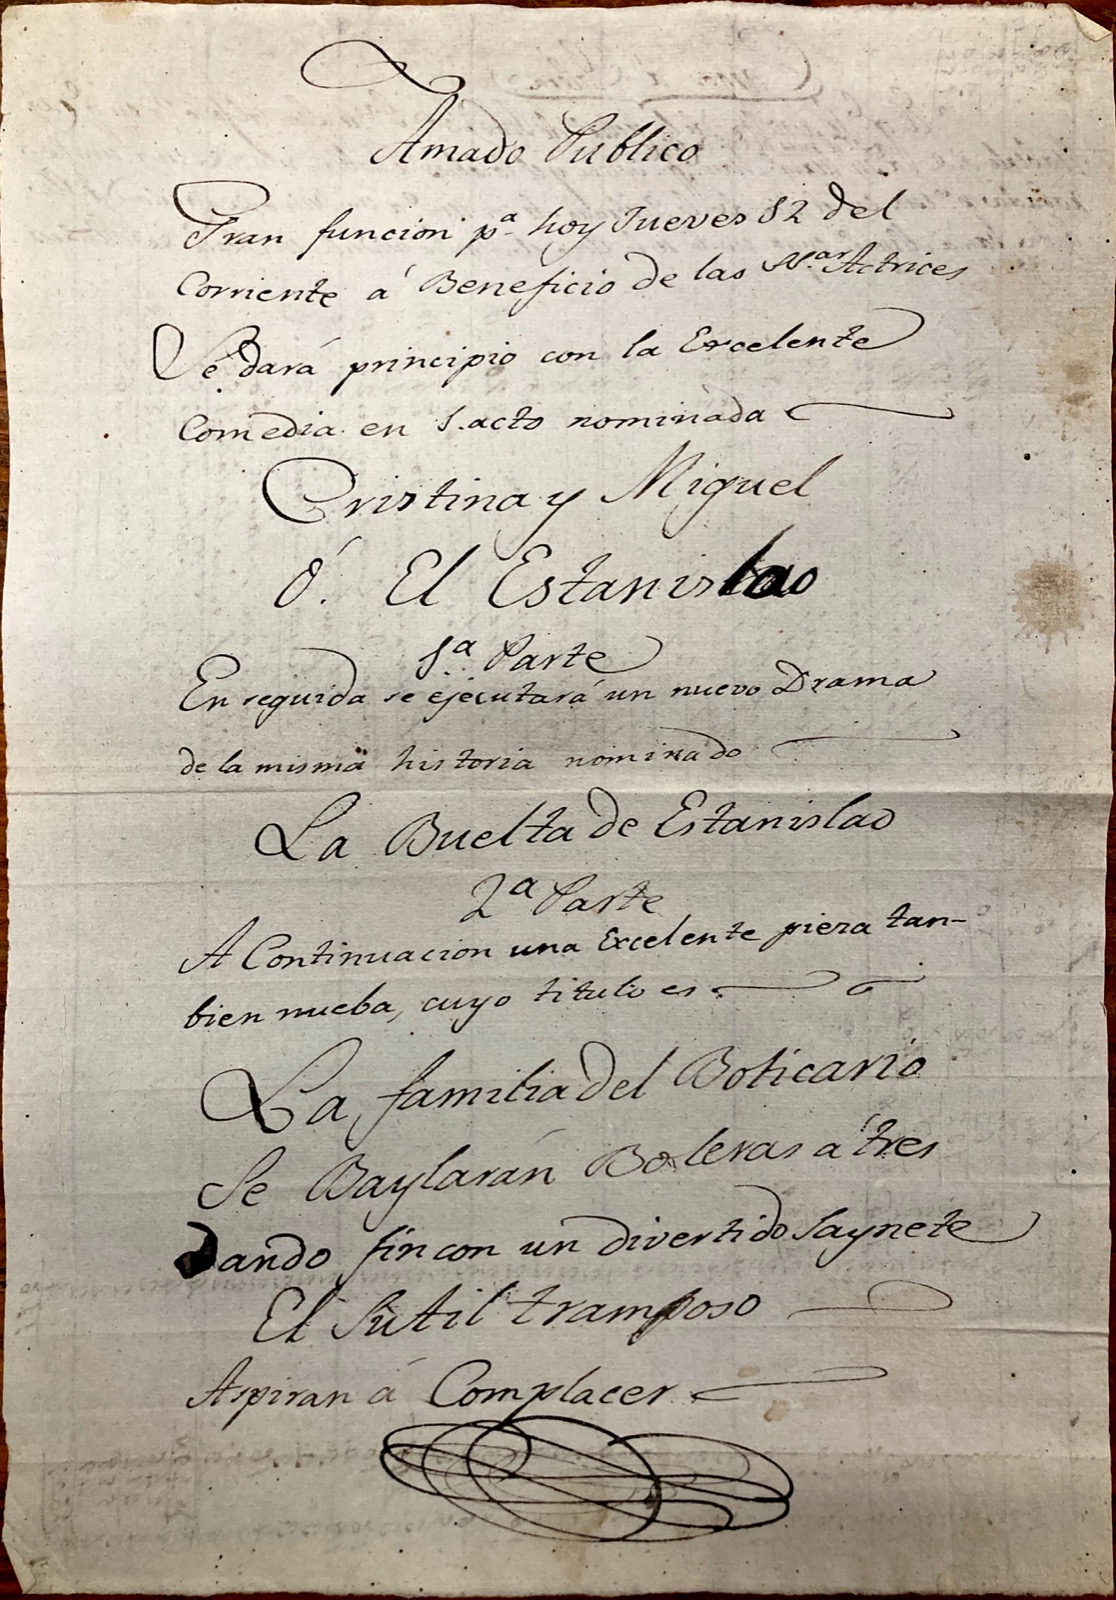 Amado Publico
Gran funcion pª hoy Jueves 12 del
Corriente á Beneficio de las Sras Actrices
Se dará principio con la Excelente
Comedia en 1. acto nominada
Cristina y Miguel
ó. El Estanislao
1ª Parte
En seguida se ejecutará un nuevo Drama
de la misma historia nominado
La Buelta de Estanislao
2ª Parte
A Continuacion una Excelente pieza tan-
bien nueba, cuyo titulo es
La familia del Boticario
Se Baylarán Boleras á tres
Dando fin con un divertido Saynete
El Sutil tramposo
Aspiran á Complacer